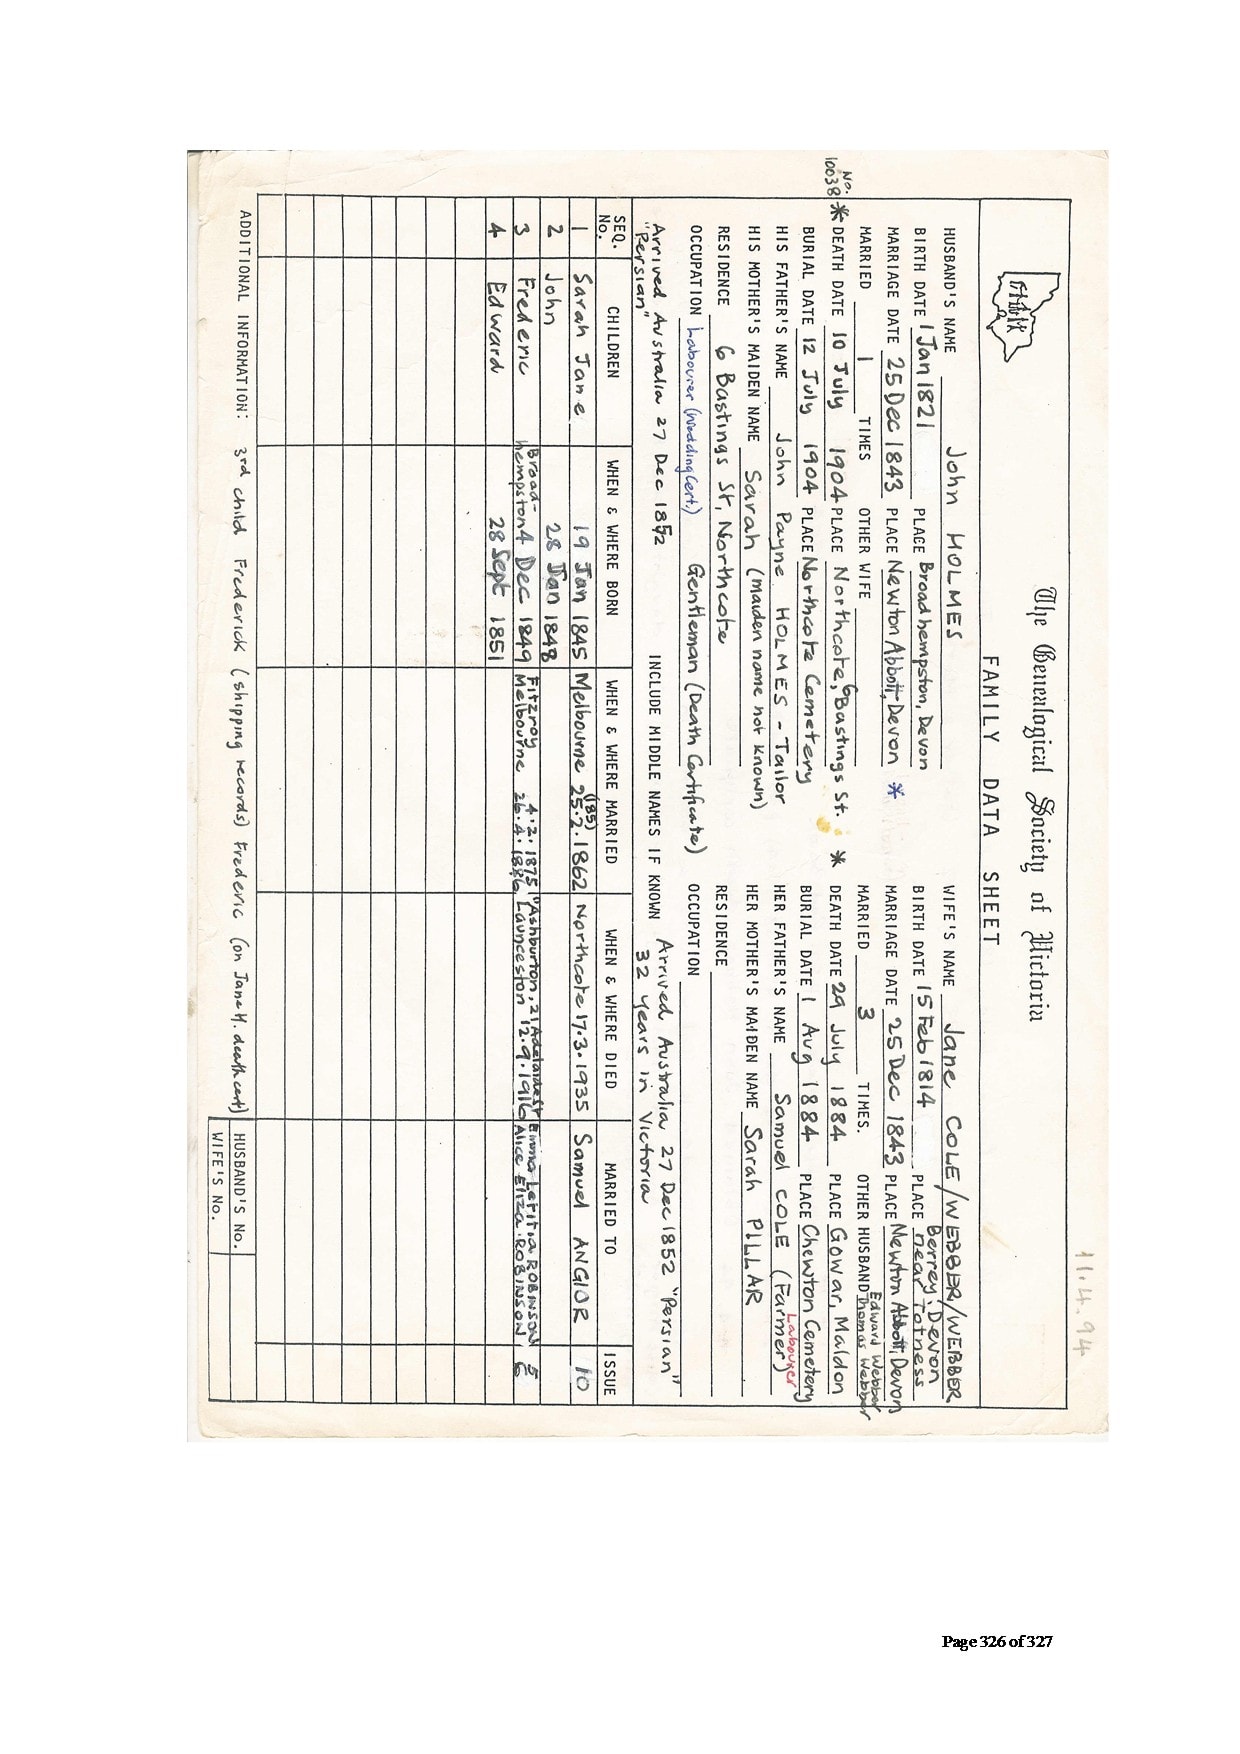 11.4.94
The Genealogical Society of Victoria
FAMILY DATA SHEET
HUSBAND'S NAME John HOLMES
BIRTH DATE 1 Jan 1821 PLACE Broadhempston, Devon
MARRIAGE DATE 25 Dec 1843 PLACE Newton Abbott, Devon *
MARRIED 1 TIMES OTHER WIFE
No. 10038 * DEATH DATE 10 July 1904 PLACE Northcote, 6 Bastings St. *
BURIAL DATE 12 July 1904 PLACE Northcote Cemetery
HIS FATHER'S NAME John Payne HOLMES - Tailor
HIS MOTHER'S MAIDEN NAME Sarah (maiden name not known)
RESIDENCE 6 Bastings St, Northcote
OCCUPATION Labourer (Wedding Cert.) Gentleman (Death Certificate)
Arrived Australia 27 Dec 1852
"Persian"
WIFE'S NAME Jane COLE/WEBBER/WEBBER
BIRTH DATE 15 Feb 1814 PLACE Berrey, Devon
near Totness
MARRIAGE DATE 25 Dec 1843 PLACE Newton Abbott, Devon
MARRIED 3 TIMES. OTHER HUSBAND Edward Webber
Thomas Webber
DEATH DATE 29 July 1884 PLACE Gowar, Maldon
BURIAL DATE 1 Aug 1884 PLACE Chewton Cemetery
HER FATHER'S NAME Samuel COLE (Farmer) Labourer
HER MOTHER'S MAIDEN NAME Sarah PILLAR
RESIDENCE
OCCUPATION
Arrived Australia 27 Dec 1852 "Persian"
32 years in Victoria
INCLUDE MIDDLE NAMES IF KNOWN
SEQ. No. CHILDREN WHEN & WHERE BORN WHEN & WHERE MARRIED WHEN & WHERE DIED MARRIED TO ISSUE
1 Sarah Jane 19 Jan 1845 Melbourne 25.2.1862 (185) Northcote 17.3.1935 Samuel ANGIOR 10
2 John 28 Jan 1848
3 Frederic Broad-hempston 4 Dec 1849 Fitzroy 4.2.1875 "Ashburton, 21 Adelaide St Emma Letitia ROBINSON 5
Melbourne 26.4.1886 Launceston 12.9.1916 Alice Eliza ROBINSON 6
4 Edward 28 Sept 1851
ADDITIONAL INFORMATION: 3rd child Frederick (shipping records) Frederic (on Jane H. death cert)
HUSBAND'S No.
WIFE'S No.
Page 326 of 327